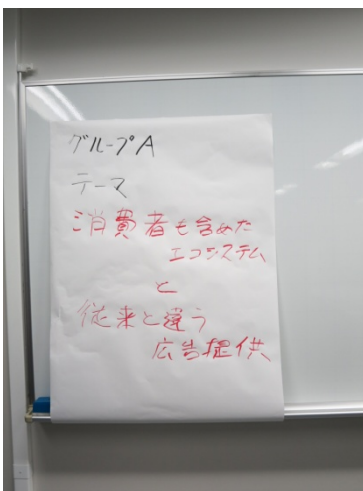 グループA
テーマ
消費者も含めた
エコシステム
と
従来と違う
広告提供